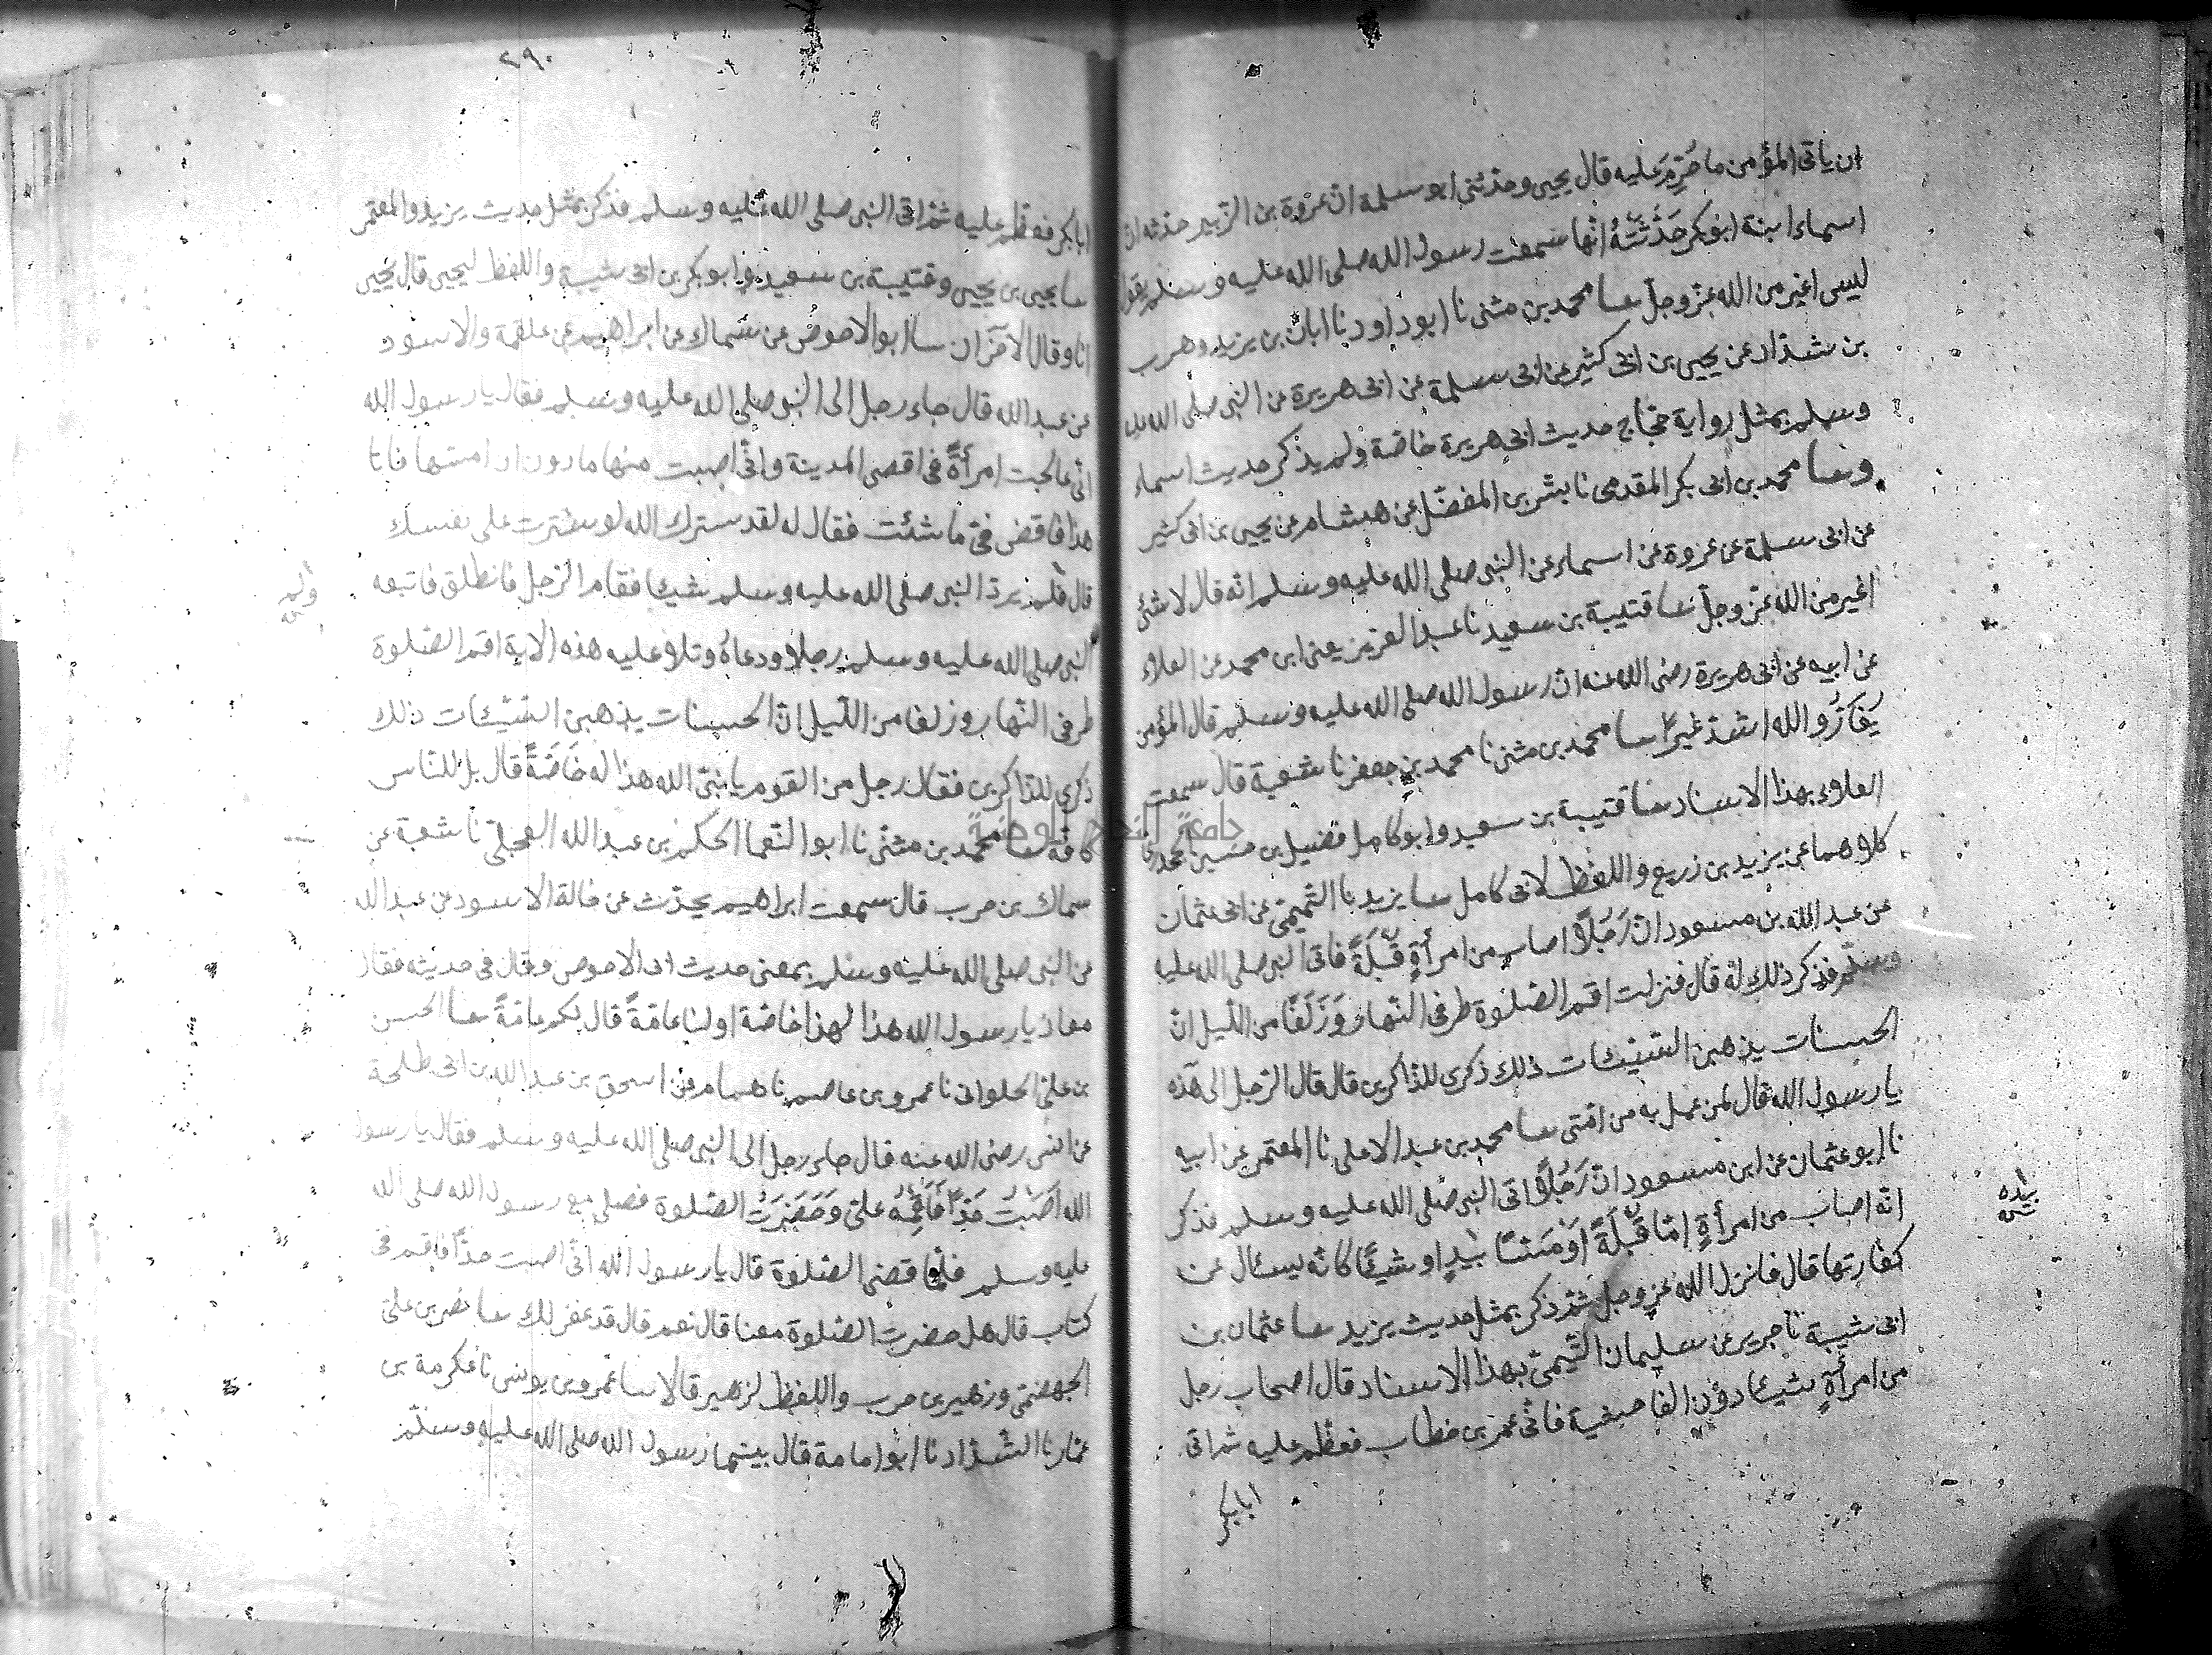 ان ياتى المؤمن ما حُرِّمَ عليه قال يحيى وحدثنى ابو سلمة ان عروة بن الزبير حدثه ان
اسماء ابنة ابو بكر حَدَّثَتْهُ انها سمعت رسول الله صلى الله عليه وسلم يقول
ليس اغير من الله عز وجل حدثنا محمد بن مثنى نا ابو داود نا ابان بن يزيد وحرب
بن شداد عن يحيى بن ابى كثير عن ابى سلمة عن ابى هريرة عن النبى صلى الله عليه
وسلم بمثل رواية حجاج حديث ابى هريرة خاصة ولم يذكر حديث اسماء
وحدثنا محمد بن ابى بكر المقدمى نا بشر بن المفضل عن هشام عن يحيى بن ابى كثير
عن ابى سلمة عن عروة عن اسماء عن النبى صلى الله عليه وسلم انه قال لا شئ
اغير من الله عز وجل حدثنا قتيبة بن سعيد نا عبد العزيز يعنى ابن محمد عن العلاء
عن ابيه عن ابى هريرة رضى الله عنه ان رسول الله صلى الله عليه وسلم قال المؤمن
يَغَارُ والله اشد غيرًا حدثنا محمد بن مثنى نا محمد بن جعفر نا شعبة قال سمعت
العلاء بهذا الاسناد حدثنا قتيبة بن سعيد وابو كامل فضيل بن حسين
كلاهما عن يزيد بن زريع واللفظ لابى كامل حدثنا يزيد نا التيمى عن ابى عثمان
عن عبد الله بن مسعود ان رَجُلًا اصاب من امرأةٍ قُبْلَةً فاتى النبى صلى الله عليه
وسلم فذكر ذلك له قال فنزلت اقم الصلوة طرفى النهار وَزُلَفًا من الليل ان
الحسنات يذهبن السيئات ذلك ذكرى للذاكرين قال قال الرجل الى هذه
يا رسول الله قال لمن عمل به من امتى حدثنا محمد بن عبد الاعلى نا المعتمر عن ابيه
نا ابو عثمان عن ابن مسعود ان رَجُلًا اتى النبى صلى الله عليه وسلم فذكر
انه اصاب من امرأةٍ اما قُبْلَةً اوْ مَسًّا بِيَدٍ او شيئًا كانه يسئال عن
كفارتها قال فانزل الله عز وجل ثم ذكر بمثل حديث يزيد حدثنا عثمان بن
ابى شيبة نا جرير عن سليمان التيمى بهذا الاسناد قال اصاب رجل
من امرأةٍ شيئا دون الفاحشة فاتى عمر بن خطاب فعظم عليه ثم اتى
ابابكر
بيده
٢٩٠
ابابكر فعظم عليه ثم اتى النبى صلى الله عليه وسلم فذكر بمثل حديث يزيد والمعتمر
حدثنا يحيى بن يحيى وقتيبة بن سعيد وابو بكر بن ابى شيبة واللفظ ليحيى قال يحيى
انا وقال الآخران نا ابو الاحوص عن سماك عن ابراهيم عن علقمة والاسود
عن عبد الله قال جاء رجل الى النبى صلى الله عليه وسلم فقال يا رسول الله
انى عالجت امرأةً فى اقصى المدينة وانى اصبت منها ما دون ان امسها فانا
هذا فاقض فىّ ما شئت فقال له لقد سترك الله لو سترت على نفسك
قال فلم يرد النبى صلى الله عليه وسلم شيئا فقام الرجل فانطلق فاتبعه
النبى صلى الله عليه وسلم رجلا ودعاهُ وتلا عليه هذه الاية اقم الصلوة
طرفى النهار وزلفا من الليل ان الحسنات يذهبن السيئات ذلك
ذكرى للذاكرين فقال رجل من القوم يا نبى الله هذا له خَاصَّةً قال بل للناس
كافة حدثنا محمد بن مثنى نا ابو النعما الحكم بن عبد الله العجلى نا شعبة عن
سماك بن حرب قال سمعت ابراهيم يحدث عن خاله الاسود عن عبد الله
عن النبى صلى الله عليه وسلم بمعنى حديث ابى الاحوص وقال فى حديثه فقال
معاذ يا رسول الله هذا لهذا خاصة او لنا عامةً قال لكم عامةً حدثنا الحسن
بن على الحلوانى نا عمرو بن عاصم نا همام عن اسحق بن عبد الله بن ابى طلحة
عن انس رضى الله عنه قال جاء رجل الى النبى صلى الله عليه وسلم فقال يا رسول
الله اَصَبْتُ حَدًّا فَاَقِمْهُ علىّ وَحَضَرَتْ الصلوة فصلى مع رسول الله صلى الله
عليه وسلم فلما قضى الصلوة قال يا رسول الله انى اصبت حدًّا فاقم فى
كتاب قال هل حضرت الصلوة معنا قال نعم قال قد غفر لك حدثنا نصر بن على
الجهضمى وزهير بن حرب واللفظ لزهير قالا نا عمر بن يونس نا عكرمة بن
عمار نا الشداد نا ابو امامة قال بينما رسول الله صلى الله عليه وسلم
ولم
جامعة النجاح الوطنية